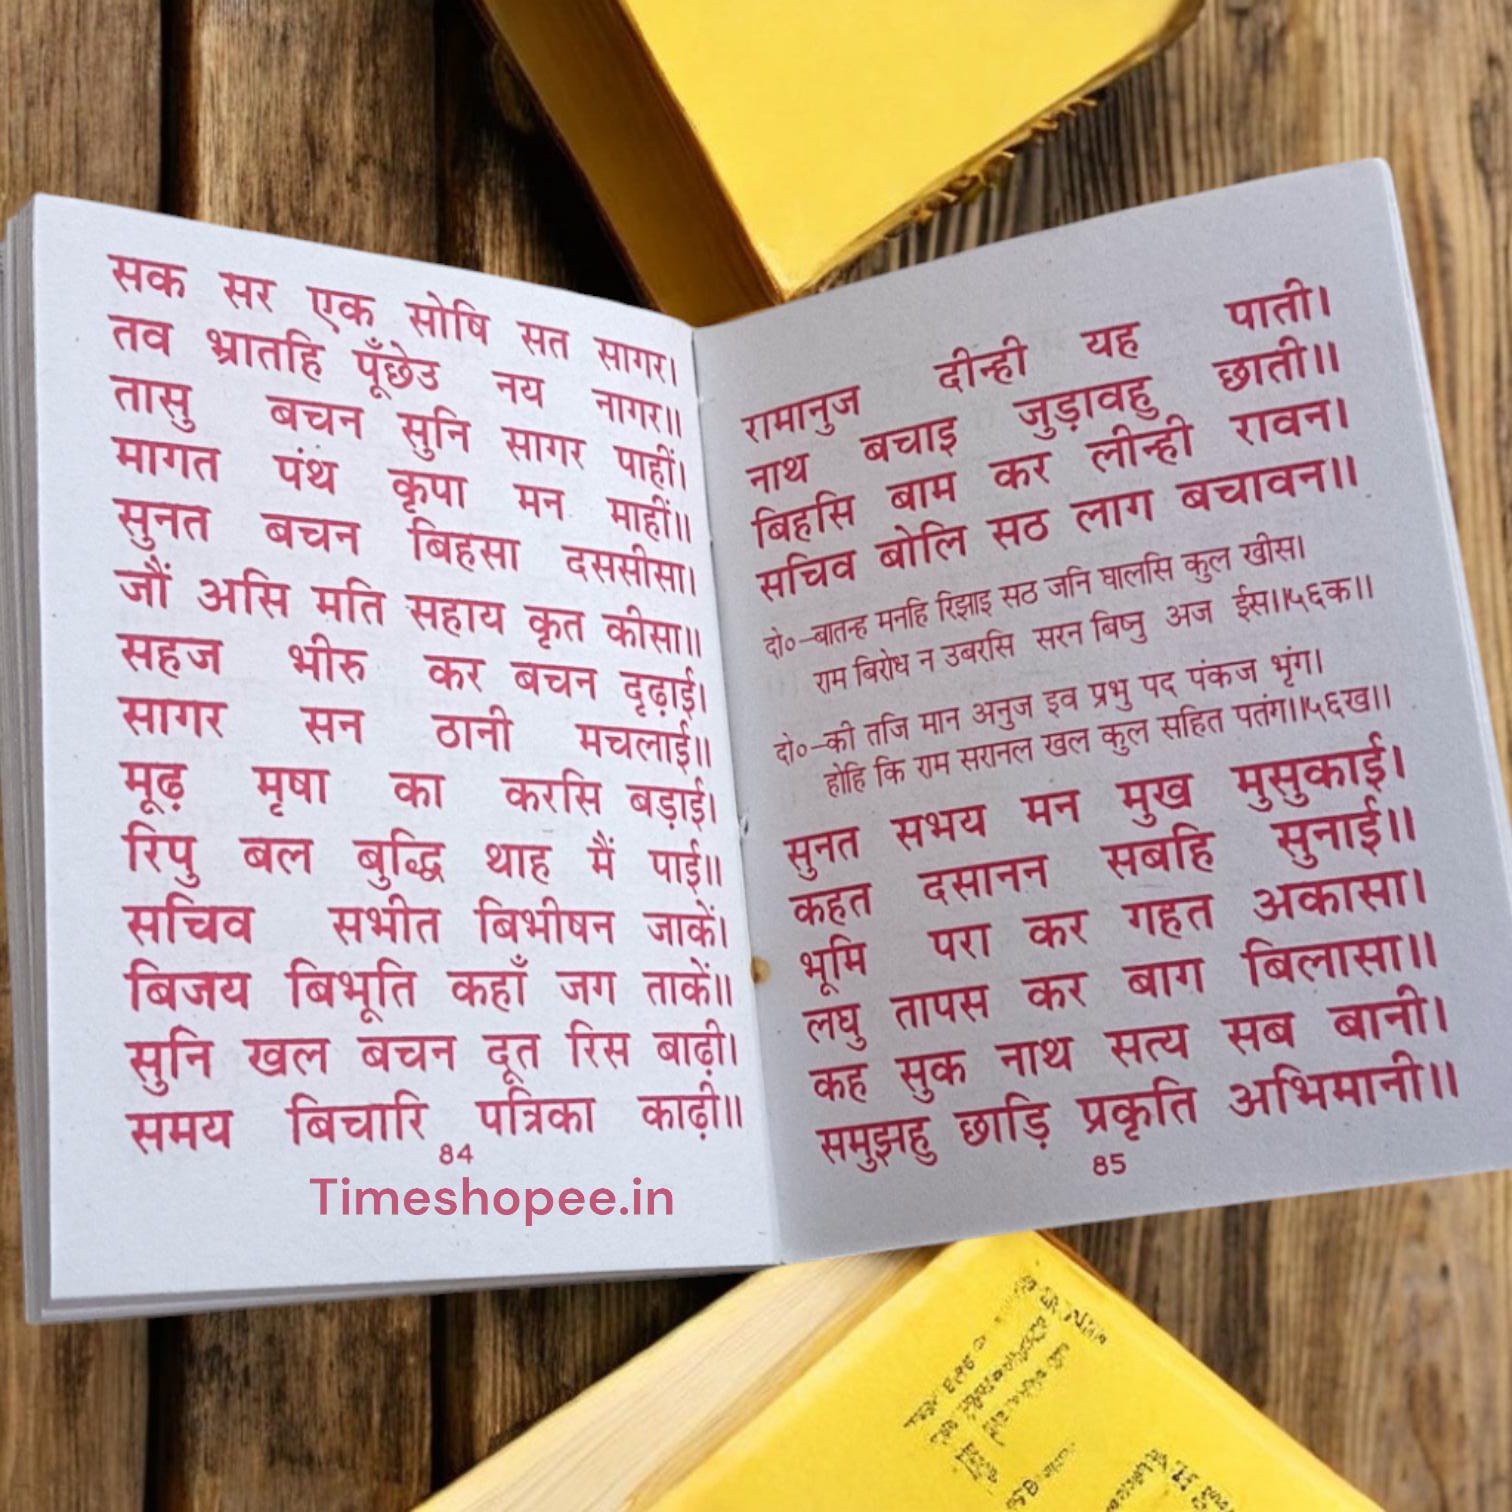 सक सर एक सोषि सत सागर।
तव भ्रातहि पूँछेउ नय नागर॥
तासु बचन सुनि सागर पाहीं।
मागत पंथ कृपा मन माहीं॥
सुनत बचन बिहसा दससीसा।
जौं असि मति सहाय कृत कीसा॥
सहज भीरु कर बचन दृढ़ाई।
सागर सन ठानी मचलाई॥
मूढ़ मृषा का करसि बड़ाई।
रिपु बल बुद्धि थाह मैं पाई॥
सचिव सभीत बिभीषन जाकें।
बिजय बिभूति कहाँ जग ताकें॥
सुनि खल बचन दूत रिस बाढ़ी।
समय बिचारि पत्रिका काढ़ी॥
84
Timeshopee.in
रामानुज दीन्ही यह पाती।
नाथ बचाइ जुड़ावहु छाती॥
बिहसि बाम कर लीन्ही रावन।
सचिव बोलि सठ लाग बचावन॥
दो०–बातन्ह मनहि रिझाइ सठ जनि घालसि कुल खीस।
राम बिरोध न उबरसि सरन बिष्नु अज ईस॥५६क॥
दो०–की तजि मान अनुज इव प्रभु पद पंकज भृंग।
होहि कि राम सरानल खल कुल सहित पतंग॥५६ख॥
सुनत सभय मन मुख मुसुकाई।
कहत दसानन सबहि सुनाई॥
भूमि परा कर गहत अकासा।
लघु तापस कर बाग बिलासा॥
कह सुक नाथ सत्य सब बानी।
समुझहु छाड़ि प्रकृति अभिमानी॥
85